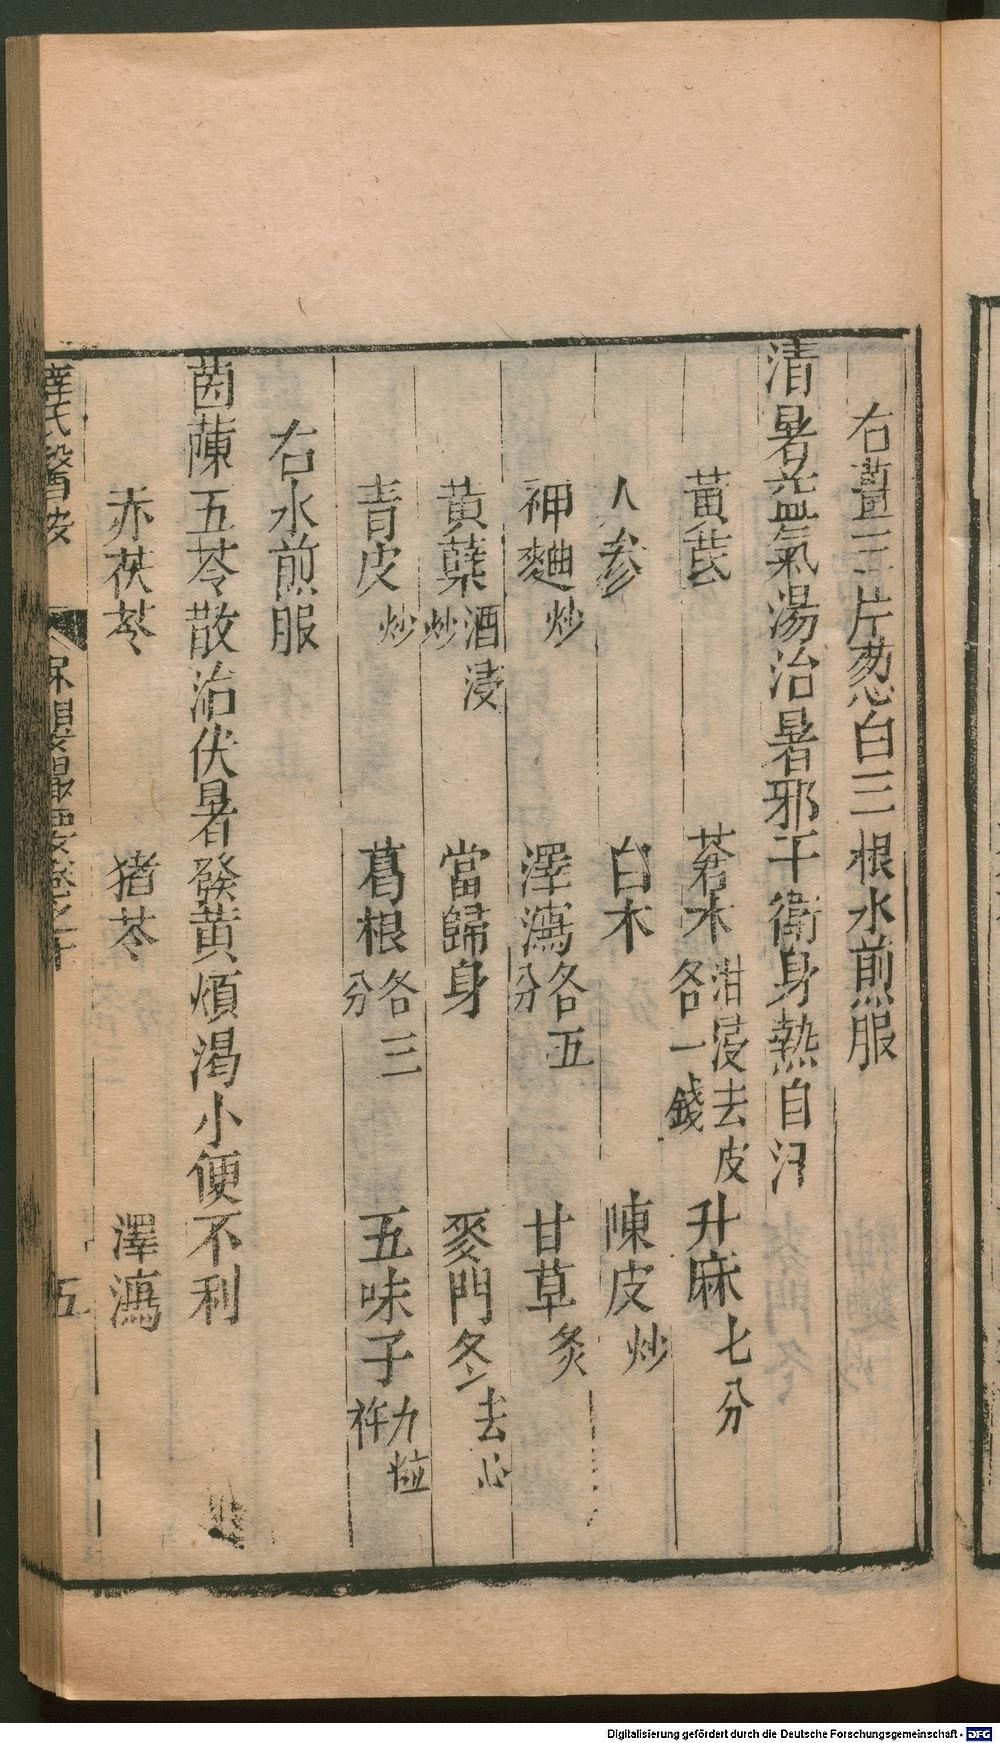 右薑三片葱白三根水煎服
清暑益氣湯治暑邪干衛身熱自汗
黃芪　蒼朮泔浸去皮各一錢　升麻七分
人參　白朮　陳皮炒
神麯炒　澤瀉各五分　甘草炙
黃蘖酒浸炒　當歸身　麥門冬去心
青皮炒　葛根各三分　五味子九粒杵
右水煎服
茵蔯五苓散治伏暑發黃煩渴小便不利
赤茯苓　猪苓　澤瀉
薛氏醫按　保嬰撮要卷之十　五
Digitalisierung gefördert durch die Deutsche Forschungsgemeinschaft - DFG